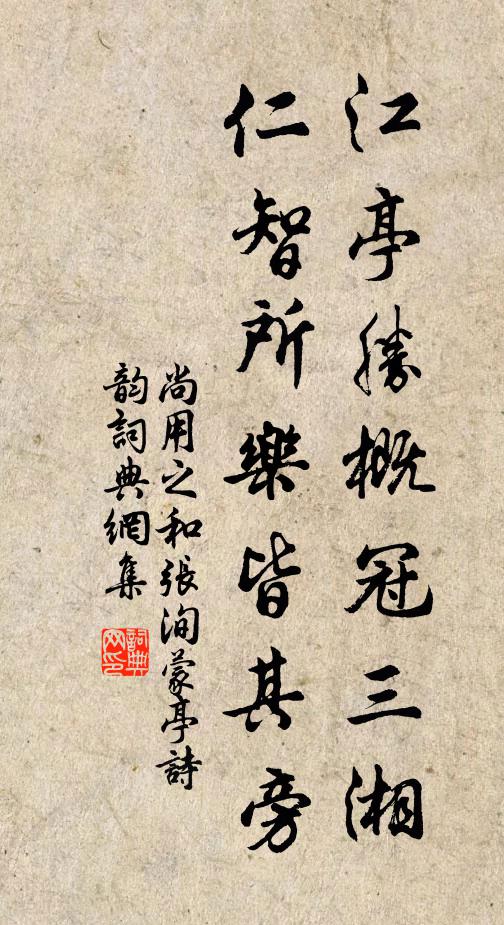 江亭勝概冠三湘
仁智所樂皆其旁
尚用之和張洵蒙亭詩
韵詞典網集
詞典网印